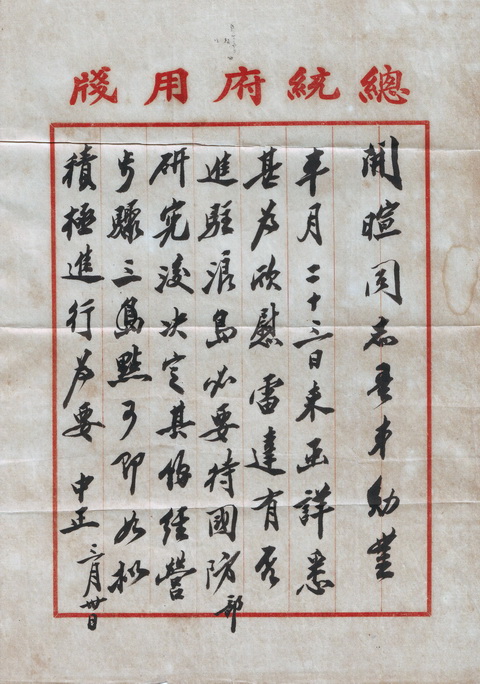 總統府用牋
開暄同志吾弟勛鑒
本月二十三日來函詳悉
甚為欣慰雷達有否
進駐浪島必要待國防部
研究後決定其經營
步驟三點可即如擬
積極進行為要 中正 三月卅日